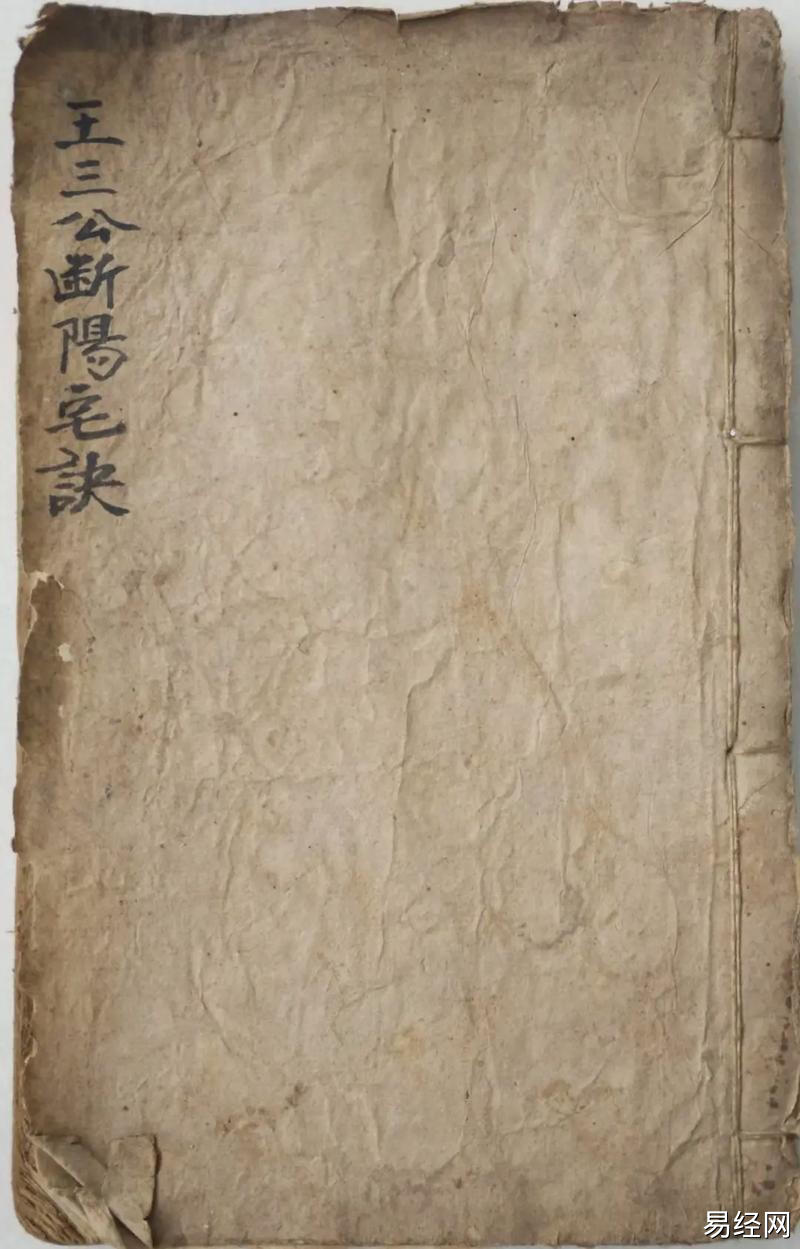 王三公断陽宅訣
易经网